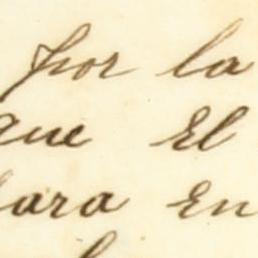 por la
que El
lara en